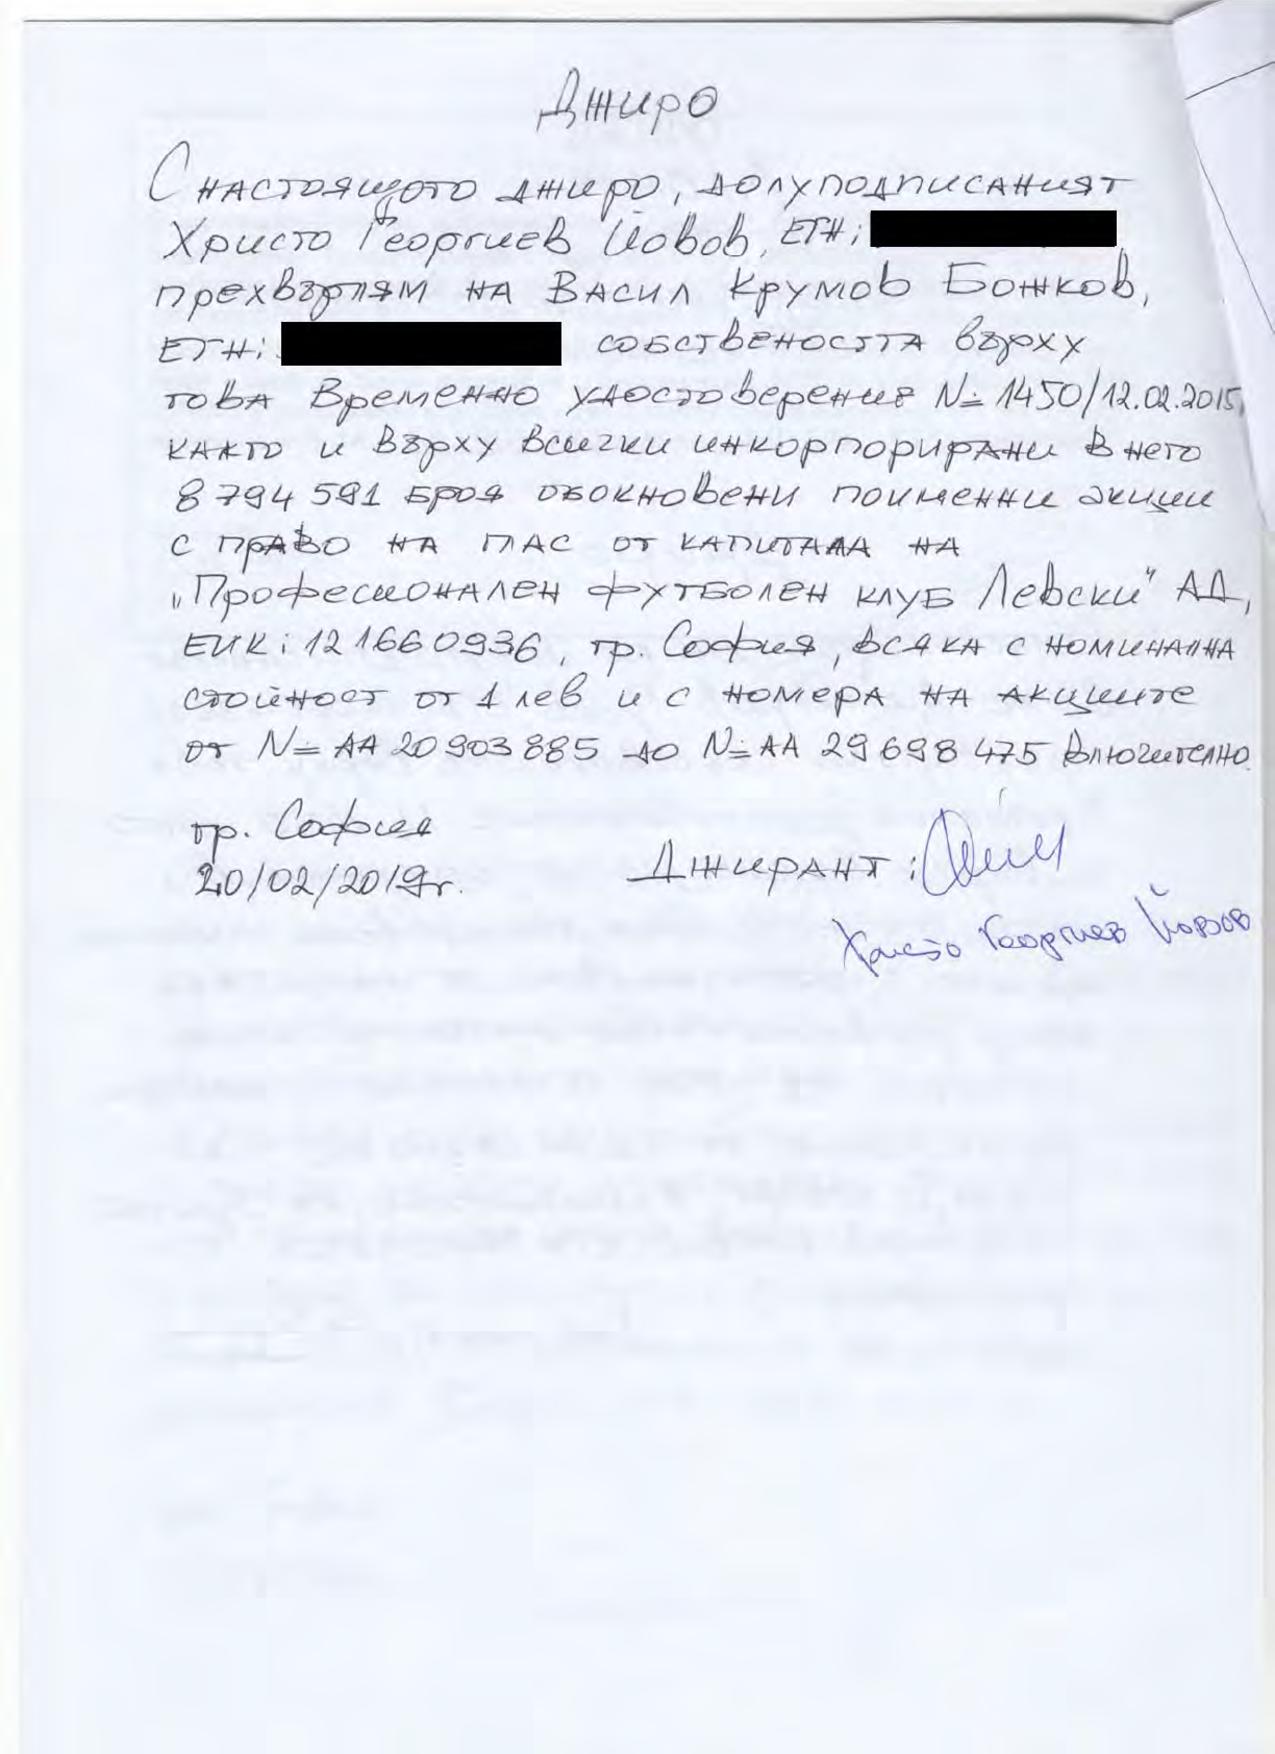 Джиро
С настоящото джиро, долуподписаният
Христо Георгиев Йовов, ЕГН:
прехвърлям на Васил Крумов Божков,
ЕГН: собствеността върху
това Временно удостоверение № 1450/12.02.2015,
както и върху всички инкорпорирани в него
8 794 591 броя обокновени поименни акции
с право на глас от капитала на
„Професионален футболен клуб Левски" АД,
ЕИК: 121660936, гр. София, всяка с номинална
стойност от 1 лев и с номера на акциите
от № АА 20 903 885 до № АА 29 698 475 включително.
гр. София
20/02/2019г.
Джирант:
Христо Георгиев Йовов